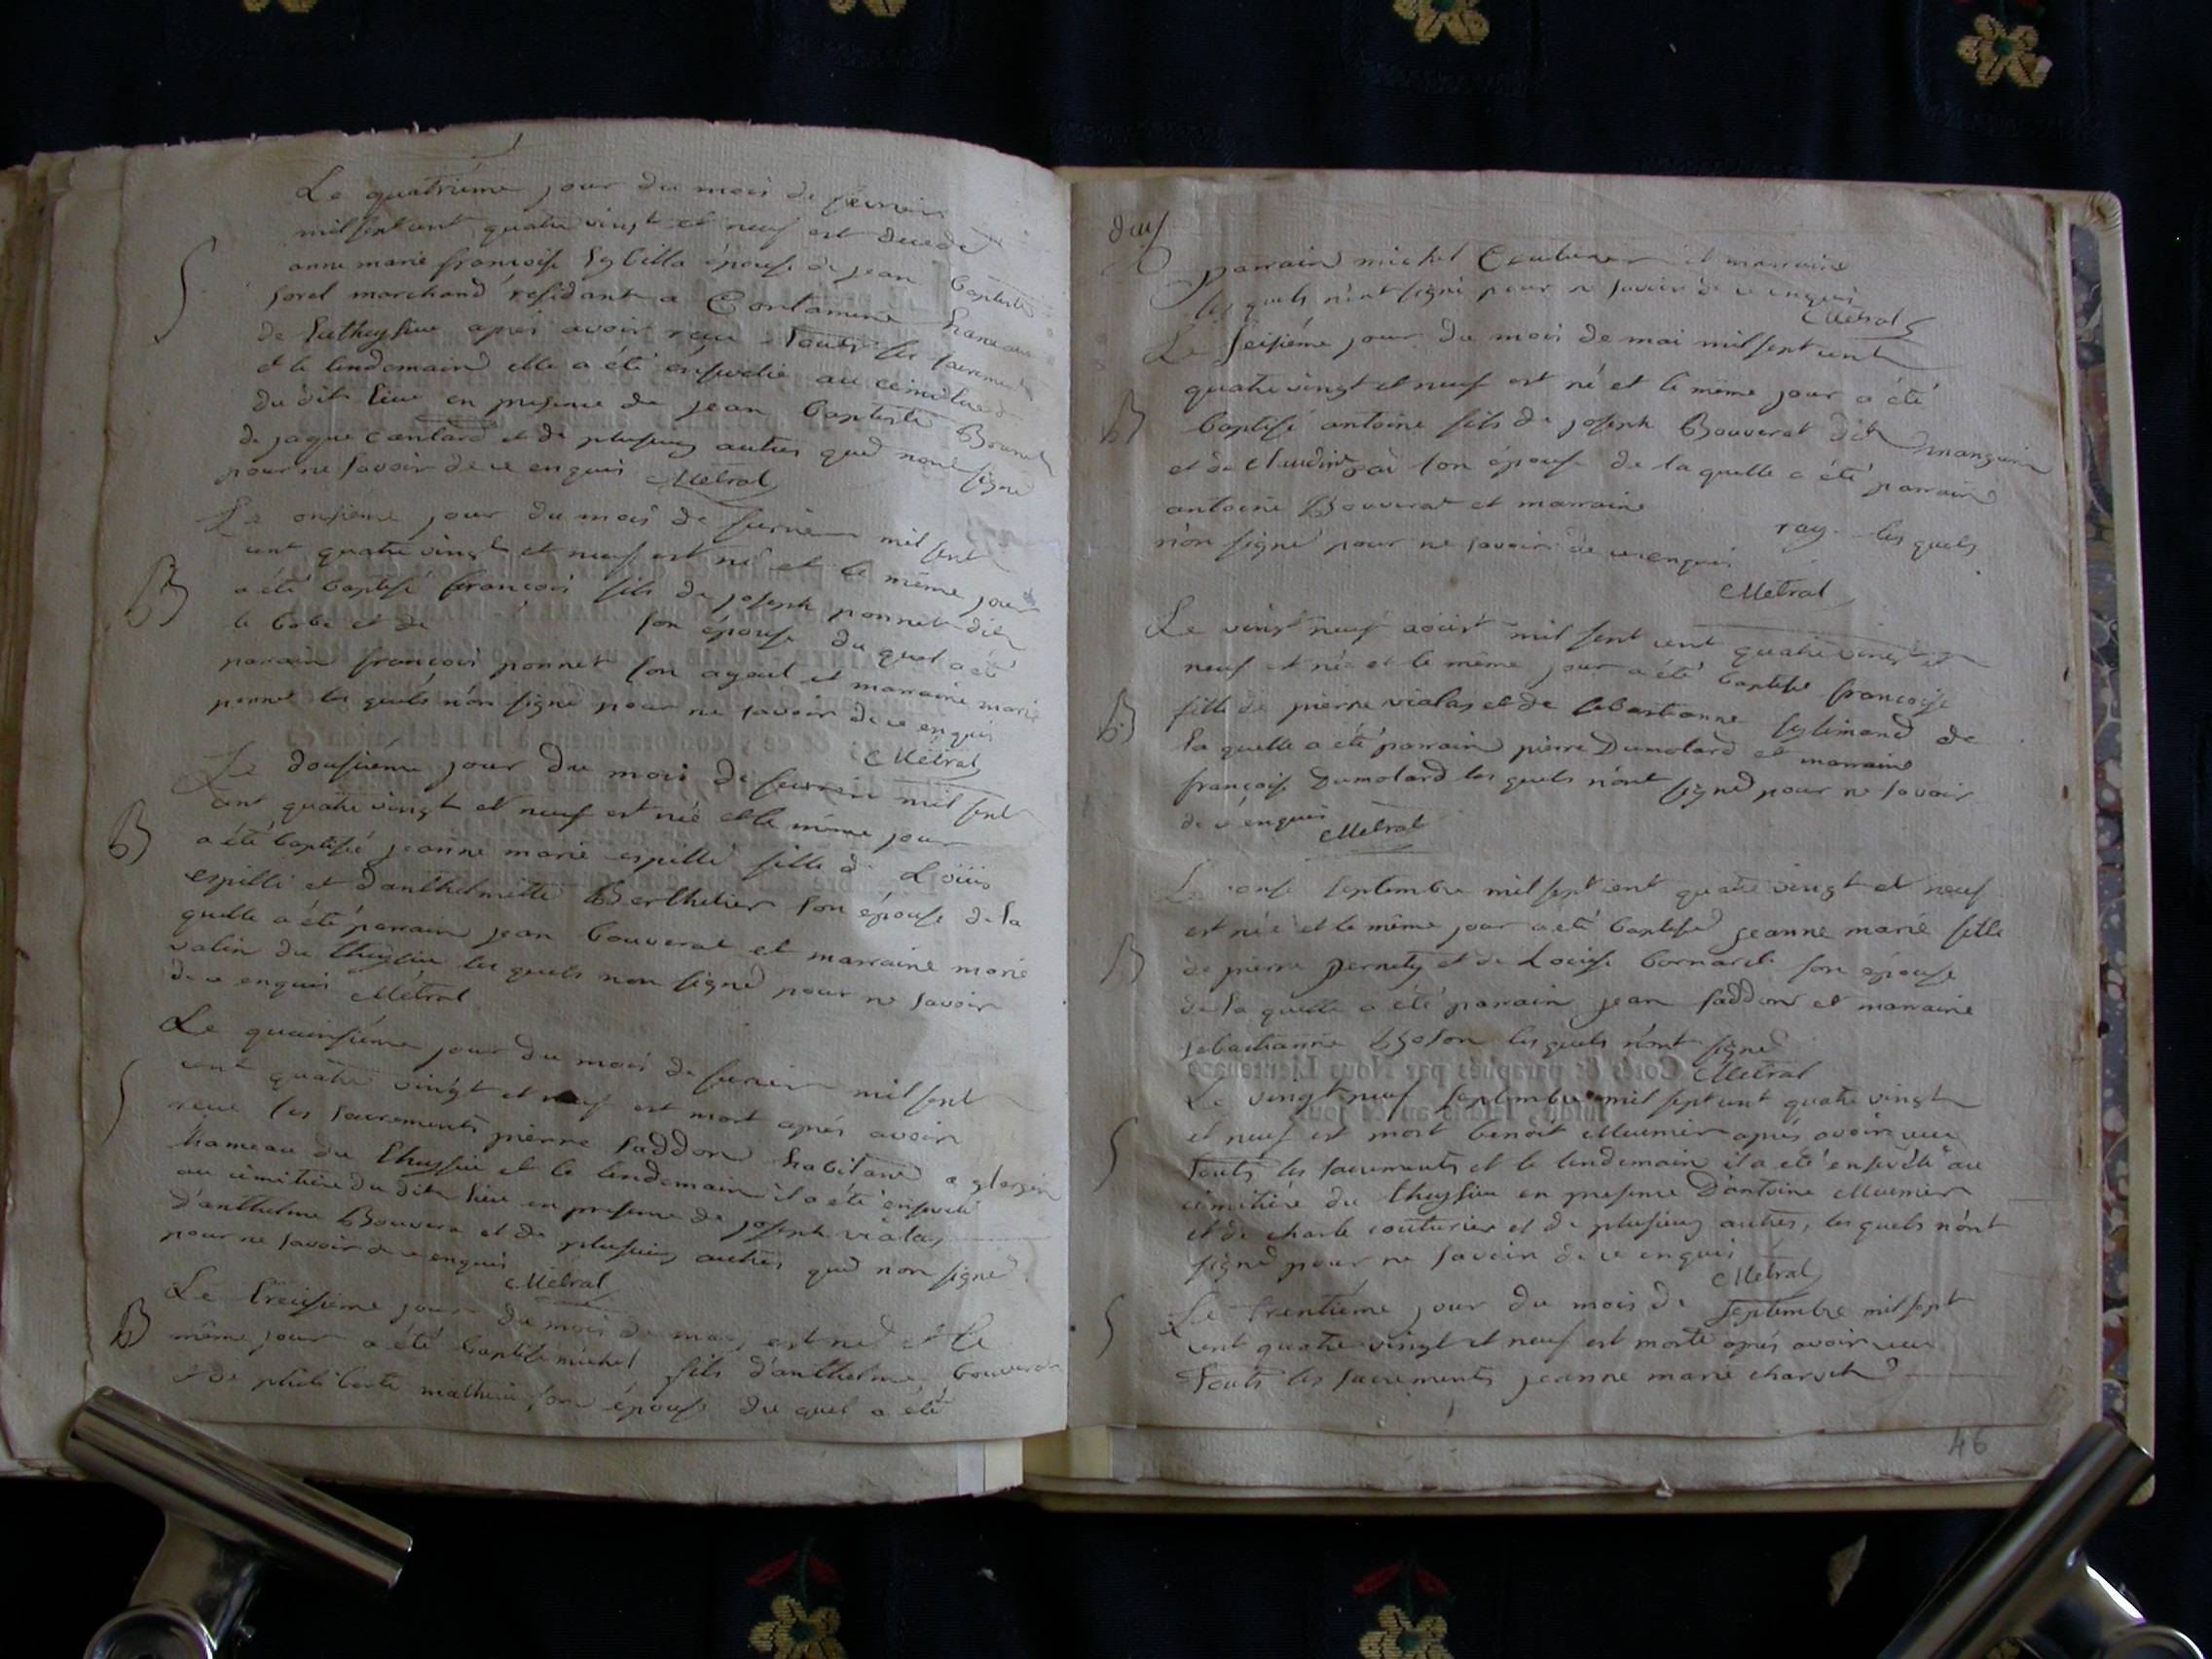 Le quatriéme jour du mois de fevrier
mil sept cent quatre vingt et neuf est decedé
anne marie françoise épouse de jean baptiste
sorel marchand résidant a Contamine hameau
de Lutheysieu aprés avoir reçu touts les sacrements
et le lendemain elle a été énsevelie au cémitiere
du dit lieu en presence de jean baptiste
de jaque et de plusieurs autres qued non signé
pour ne savoir de ce enquis Métral
S
Le onsiéme jour du mois de fevrier mil sept
cent quatre vingt et neuf est né et le même jour
a été baptisé françois fils de joseph ponnet dit
le bobe et de son épouse du quel a été
parrain françois ponnet son ayeul et marraine marie
ponnet les quels n'on signé pour ne savoir de ce enquis
Métral
B
Le dousiéme jour du mois de fevrier mil sept
cent quatre vingt et neuf est née et le même jour
a été baptisée jeanne marie espilli fille de Loüis
espilli et d'anthelmette Berthelier son épouse de la
quelle a été parrain jean bouverat et marraine marie
valin du theysieu les quels non signé pour ne savoir
de ce enquis Métral
B
Le quainsiéme jour du mois de fevrier mil sept
cent quatre vingt et neuf est mort aprés avoir
reçu les sacrements pierre saddon habitant a
hameau du theysieu et le lendemain il a été ensevelie
au cémitiere du dit lieu en presence de joseph vialas
d'anthelme Bouvera et de plusieurs autres qued non signé
pour ne savoir de ce enquis Métral
S
Le treisiéme jour du mois de mars est né et le
même jour a été baptisé michel fils d'anthelme bouverat
et de philiberte mathieu son épouse du quel a été
B
parrain michel et marraine
les quels n'ont signé pour ne savoir de ce enquis
Métral
Le seisiéme jour du mois de mai mil sept cent
quatre vingt et neuf est né et le même jour a été
baptisé antoine fils de joseph Bouverat dit mangein
et de Claudine son épouse de la quelle a été parrain
antoine Bouverat et marraine ray les quels
n'on signé pour ne savoir de ce enquis
Métral
B
Le vingt neuf aoüst mil sept cent quatre vingt et
neuf est née et le même jour a été baptisé françoise
fille de pierre vialas et de sebastianne de
la quelle a été parrain pierre Dumolard et marraine
françoise Dumolard les quels n'ont signed pour ne savoir
de ce énquis Métral
B
Le onse septembre mil sept cent quatre vingt et neuf
est née et le même jour a été baptised jeanne marie fille
de pierre pernety et de Loüise bornarde son épouse
de la quelle a été parrain jean saddon et marraine
sebastianne les quels n'ont signed
Métral
B
Le vingt neuf septembre mil sept cent quatre vingt
et neuf est mort benoit Meunier aprés avoir reçu
touts les sacrements et le lendemain il a été ensévéli au
cémitiére du theysieu en presence D'antoine Meunier
et de charle couturier et de plusieurs autres, les quels n'ont
signed pour ne savoir de ce enquis
Métral
S
Le trentiéme jour du mois de septembre mil sept
cent quatre vingt et neuf est morte aprés avoir reçu
touts les sacrements jeanne marie charvet
S
46